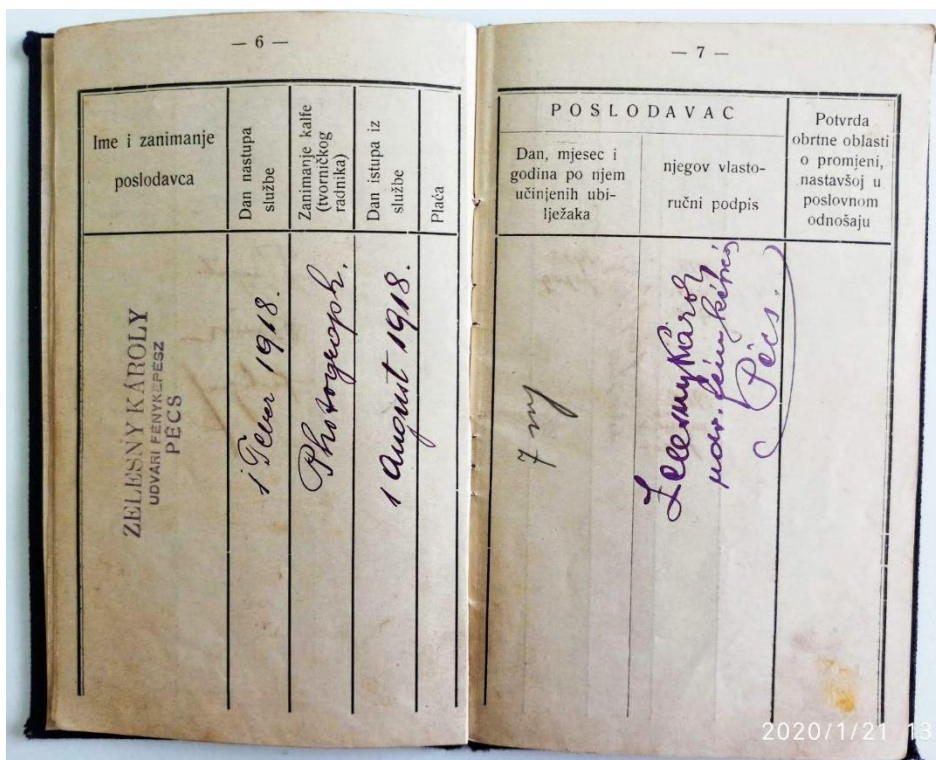 — 6 —
Ime i zanimanje
poslodavca
Dan nastupa
službe
Zanimanje kalfe
(tvorničkog
radnika)
Dan istupa iz
službe
Plaća
ZELESNY KÁROLY
UDVARI FÉNYKÉPÉSZ
PÉCS
1 1918.
Photograph.
1 August 1918.
— 7 —
POSLODAVAC
Dan, mjesec i
godina po njem
učinjenih ubi-
lježaka
njegov vlasto-
ručni podpis
Potvrda
obrtne oblasti
o promjeni,
nastavšoj u
poslovnom
odnošaju
7
Zelesny Károly
udv. fényképész
Pécs.
2020/1/21 13